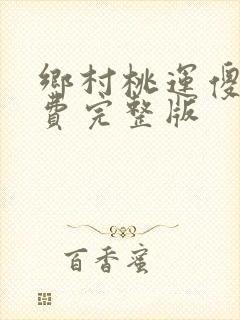 鄉村桃運傻
費完整版
百香蜜